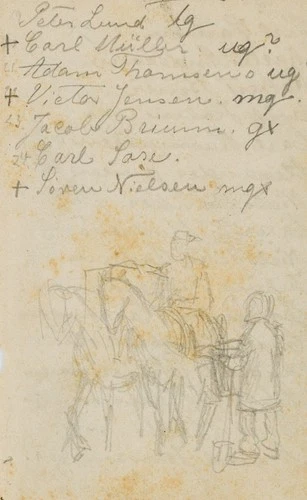 Peter Lund tg
+ Carl Müller. ug?
Adam Thomsen ug
+ Victor Jensen. mg.
Jacob Bruun. gx
24 Carl
+ Søren Nielsen mgx